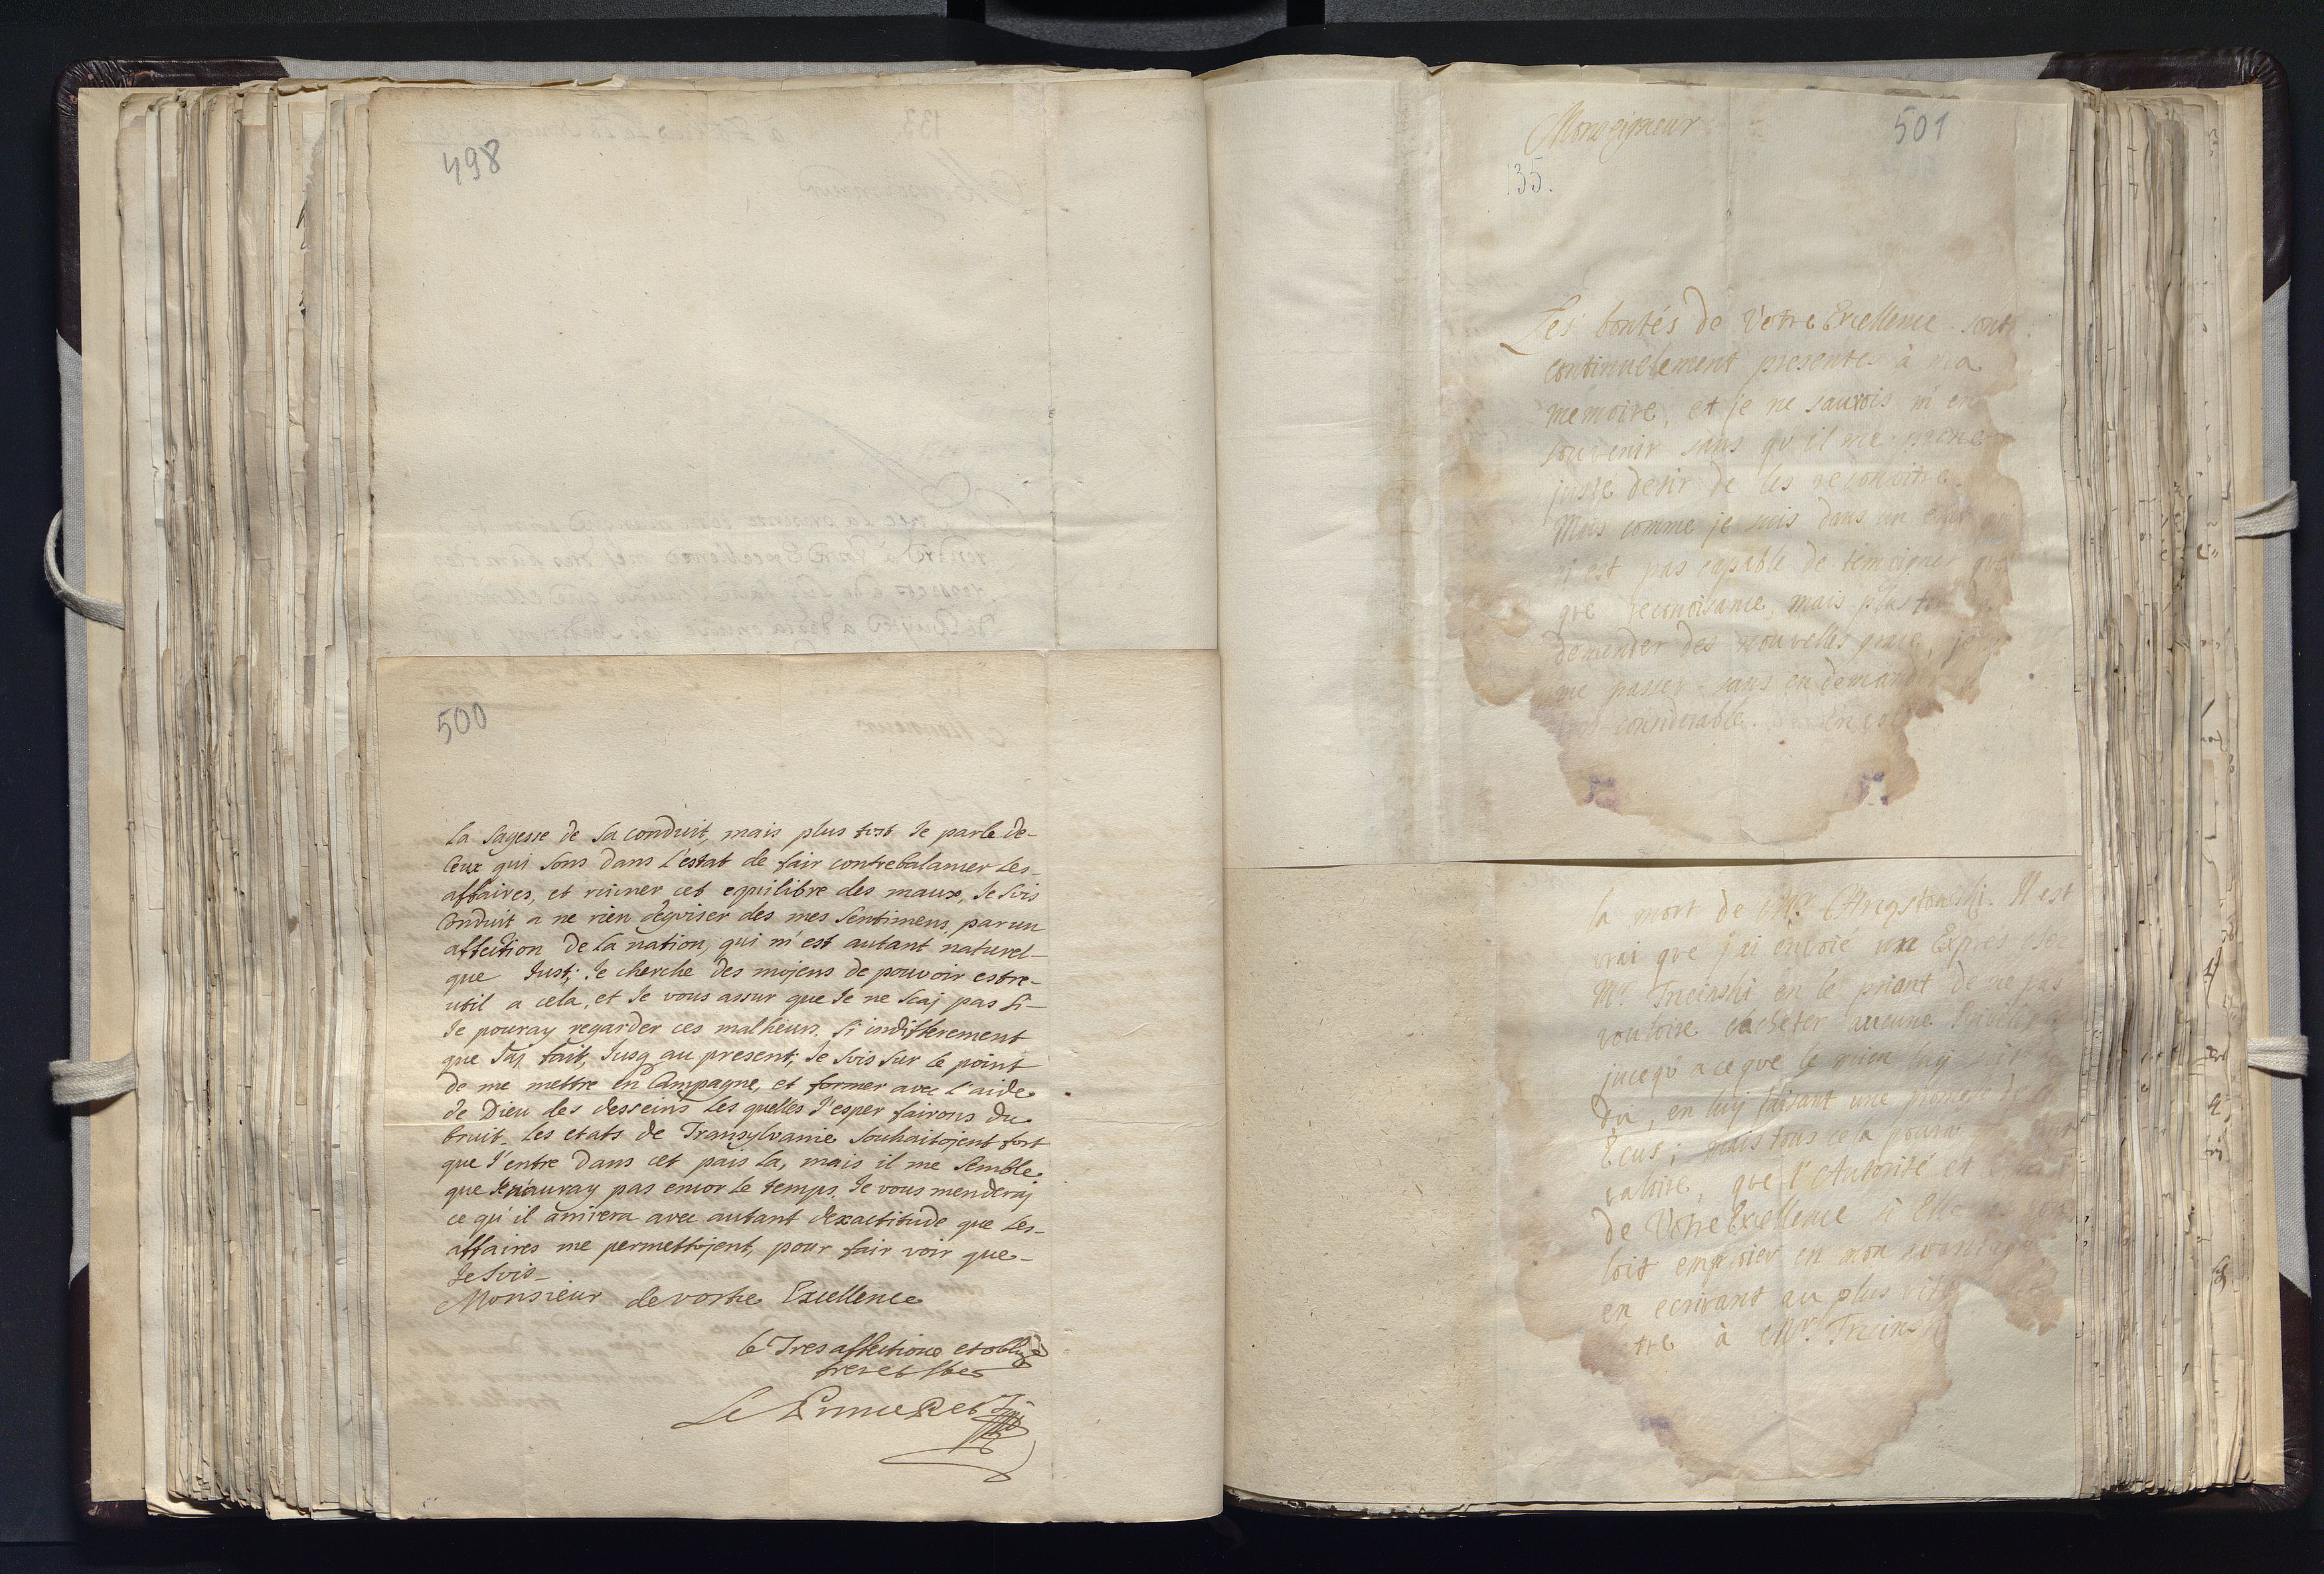 498
500
la Sagesse de sa conduit, mais plus tost Je parle de-
Ceux qui sons dans l'estat de fair contrebalancer les-
affaires, et ruiner cet equilibre des maux, Je suis
Conduit a ne rien deguiser des mes Sentimens, par un
affection de la nation, qui m'est autant naturel-
que Just; Je cherche des mojens de pouvoir estre-
util a cela, et Je vous assur que Je ne scaj pas si-
Je pouray regarder ces malheurs. si indifferement
que J'aj fait, Jusq au present; Je suis sur le point
de me mettre en Campagne, et former avec l'aide
de Dieu des desseins les quelles J'esper fairons du
bruit. les etats de Transylvanie souhaitojent fort
que J'entre dans cet païs la, mais il me semble
que Je n'auray pas encor le temps. Je vous menderaj
ce qu'il arrivera avec autant dexactitude que les-
affaires me permettojent, pour fair voir que-
Je suis-
Monsieur de vostre Excellence
le Tres affectione et oblige
Le Prince
501
Monseigneur
135.
Les bontés de Votre Excellence sont
continuelement presentes à ma
memoire, et je ne saurois m'en
souvenir sans qu'il me
juste desir de les reconoitre.
Mais comme je suis dans un etat qui
n'est pas capable de temoigner quel
que reconoisance, mais plus tot
demender des nouvelles grace, je
me passer sans en demander
considerable.
la mort de Mr
vrai que j'ai envoié un Exprés chez
Mr. Trcinski en le priant de ne pas
vouloire cacheter aucune
jucequ'a ce que le mien luy
du, en luy faisant une promese de
Ecus, mais tous cela poura
valoire, que l'Autorité et
de Votre Excellence si Elle
loit emploier en mon avantage
en ecrivant au plus vite
tre à Mr. Trcinski